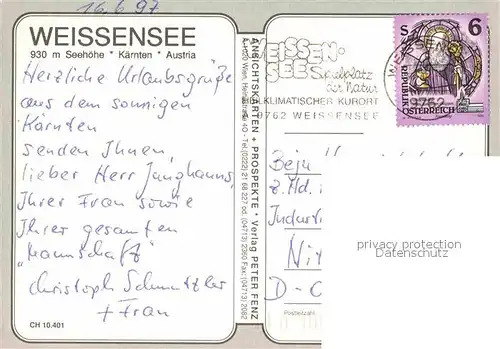 16.6.97
WEISSENSEE
930 m Seehöhe * Kärnten * Austria
Herzliche Urlaubsgrüße
aus dem sonnigen
Kärnten
senden Ihnen,
lieber Herr Junghanns,
Ihrer Frau sowie
Ihrer gesamten
"Mannschaft"
Christoph Schmutzler
+ Frau
CH 10.401
ANSICHTSKARTEN + PROSPEKTE * Verlag PETER FENZ
WEISSEN-
SEE Spielplatz
der Natur
HEILKLIMATISCHER KURORT
9762 WEISSENSEE
S 6
REPUBLIK
ÖSTERREICH
9762
z.Hd.
Industri
D-
Postleitzahl
privacy protection
Datenschutz